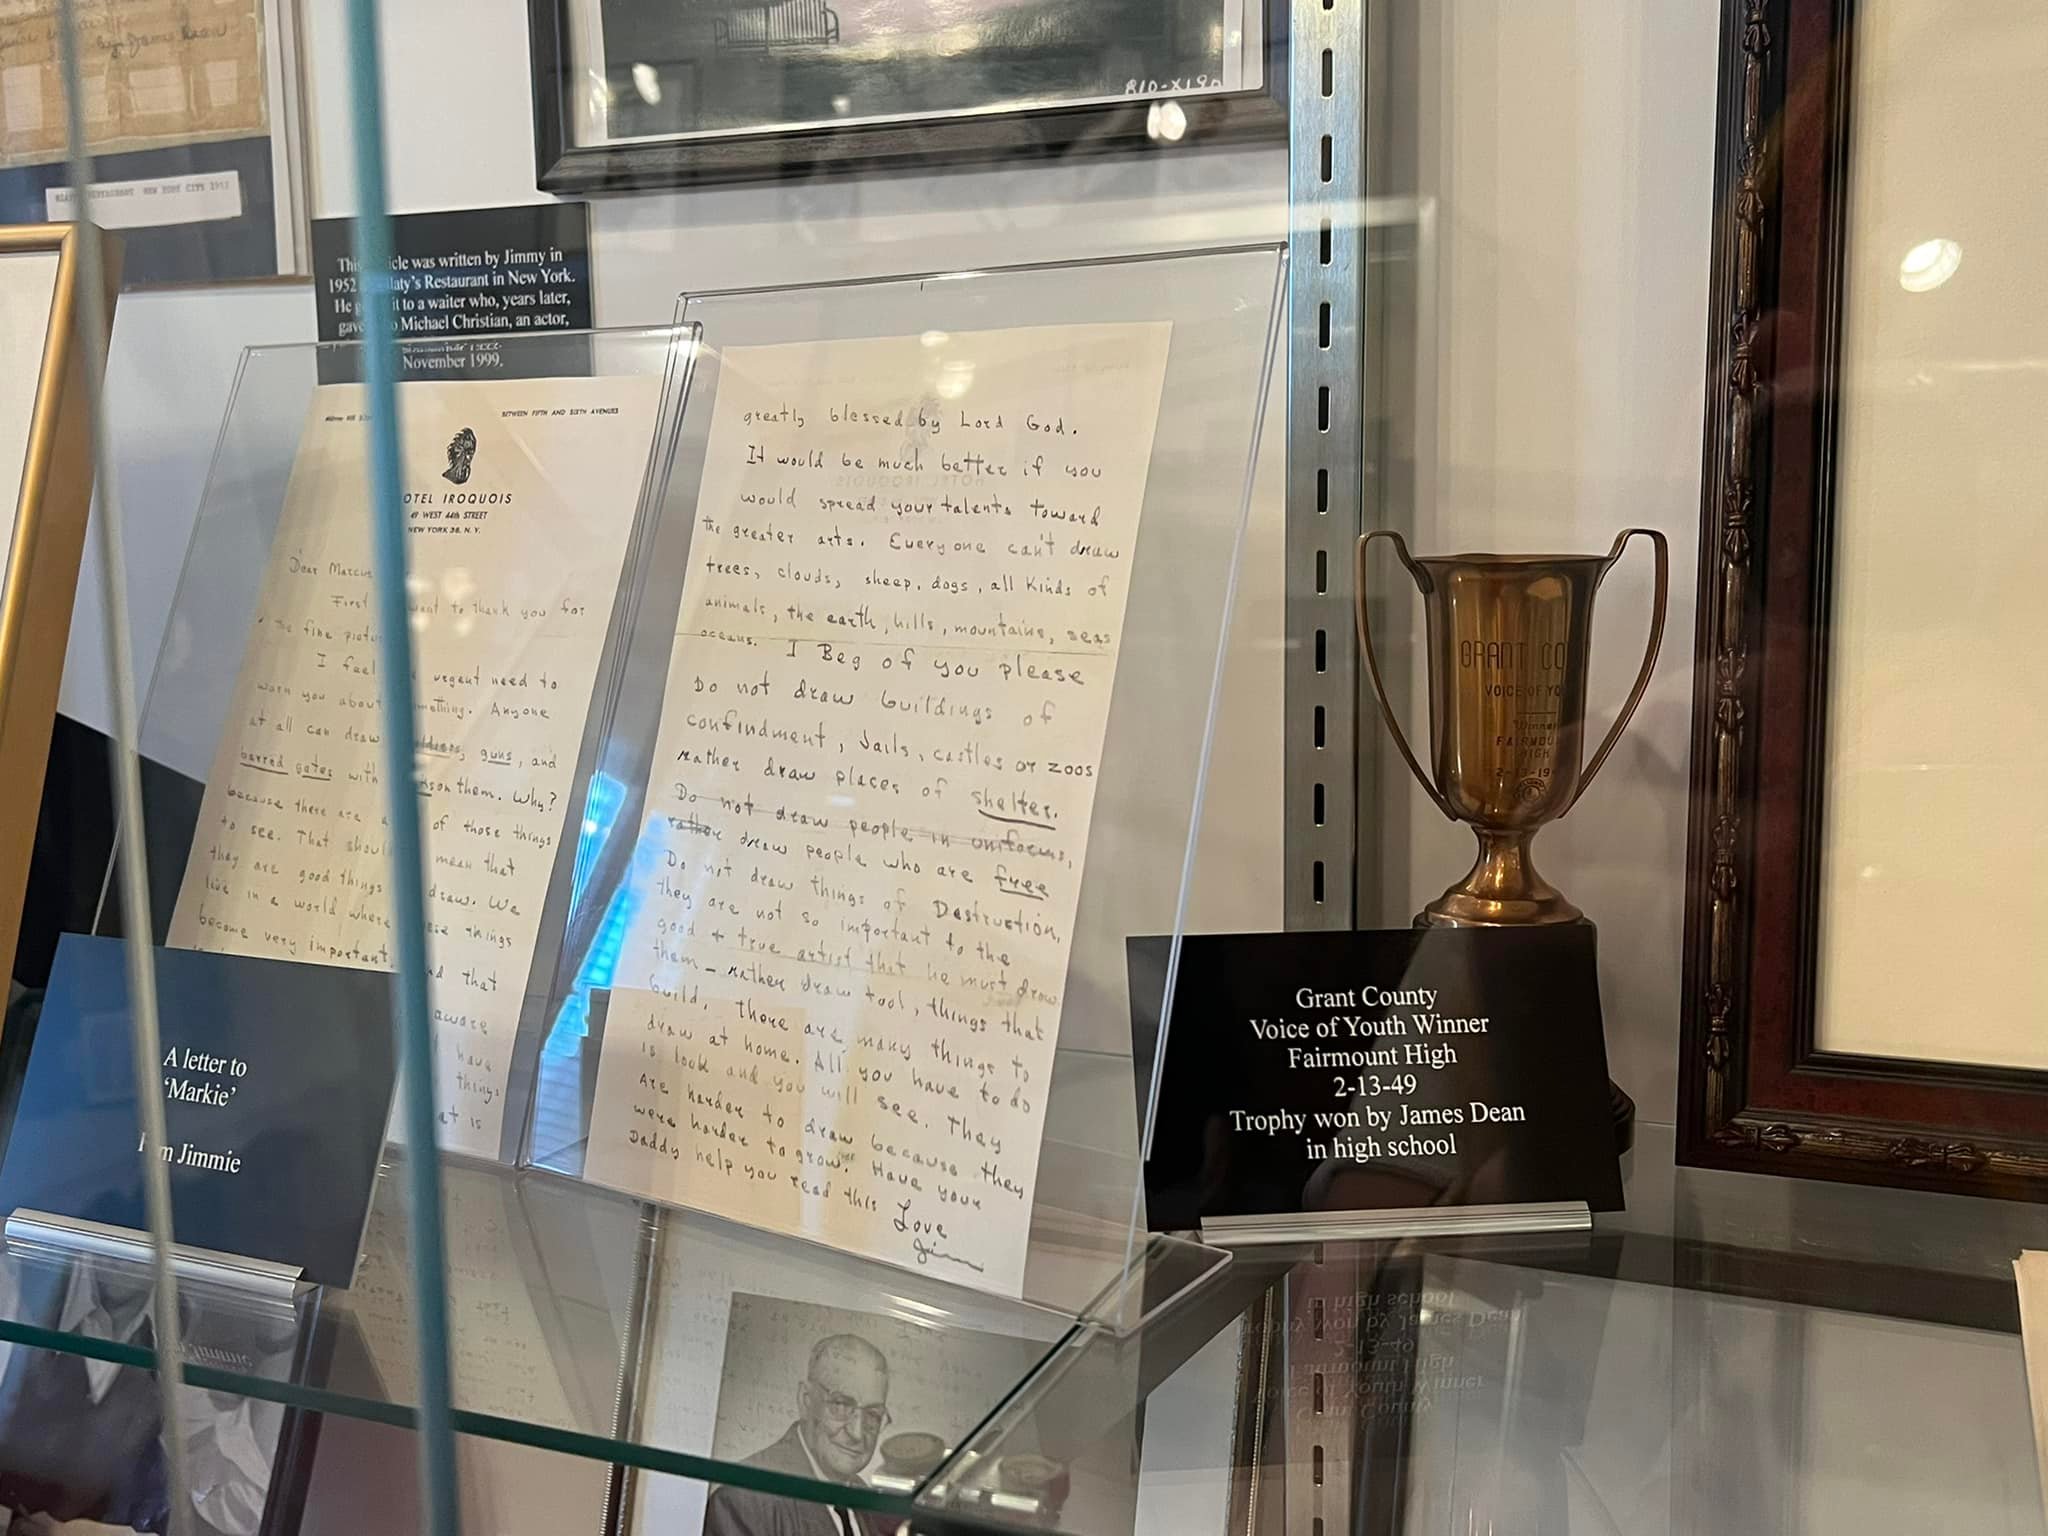 by James Dean
NEW YORK CITY
This
was written by Jimmy in
1952
Restaurant in New York.
He
it to a waiter who, years later,
gave
Michael Christian, an actor,
November 1999.
BETWEEN FIFTH AND SIXTH AVENUES
OTEL IROQUOIS
49 WEST 44th STREET
NEW YORK 36, N. Y.
Dear Marcus
First want to thank you for
the fine
I feel urgent need to
warn you about Anyone
at all can draw guns, and
barred gates with them. Why?
because there are of those things
to see. That mean that
they are good things draw. We
live in a world where things
become very important.
that
aware
have
things
is
greatly blessed by Lord God.
It would be much better if you
would spread your talents toward
the greater arts. Everyone can't draw
trees, clouds, sheep, dogs, all kinds of
animals, the earth, hills, mountains, seas
oceans. I Beg of you please
Do not draw buildings of
confindment, Jails, castles or zoos
rather draw places of shelter.
Do not draw people in uniforms,
rather draw people who are free
Do not draw things of Destruction,
they are not so important to the
good + true artist that he must draw
them - rather draw tool, things that
build. There are many things to
draw at home. All you have to do
is look and you will see. They
are harder to draw because they
were harder to grow. Have your
Daddy help you read this
Love
Jim
A letter to
'Markie'
Jimmie
GRANT CO
VOICE OF YO
Winner
FAIRMOU
HIGH
2-13-19
Grant County
Voice of Youth Winner
Fairmount High
2-13-49
Trophy won by James Dean
in high school